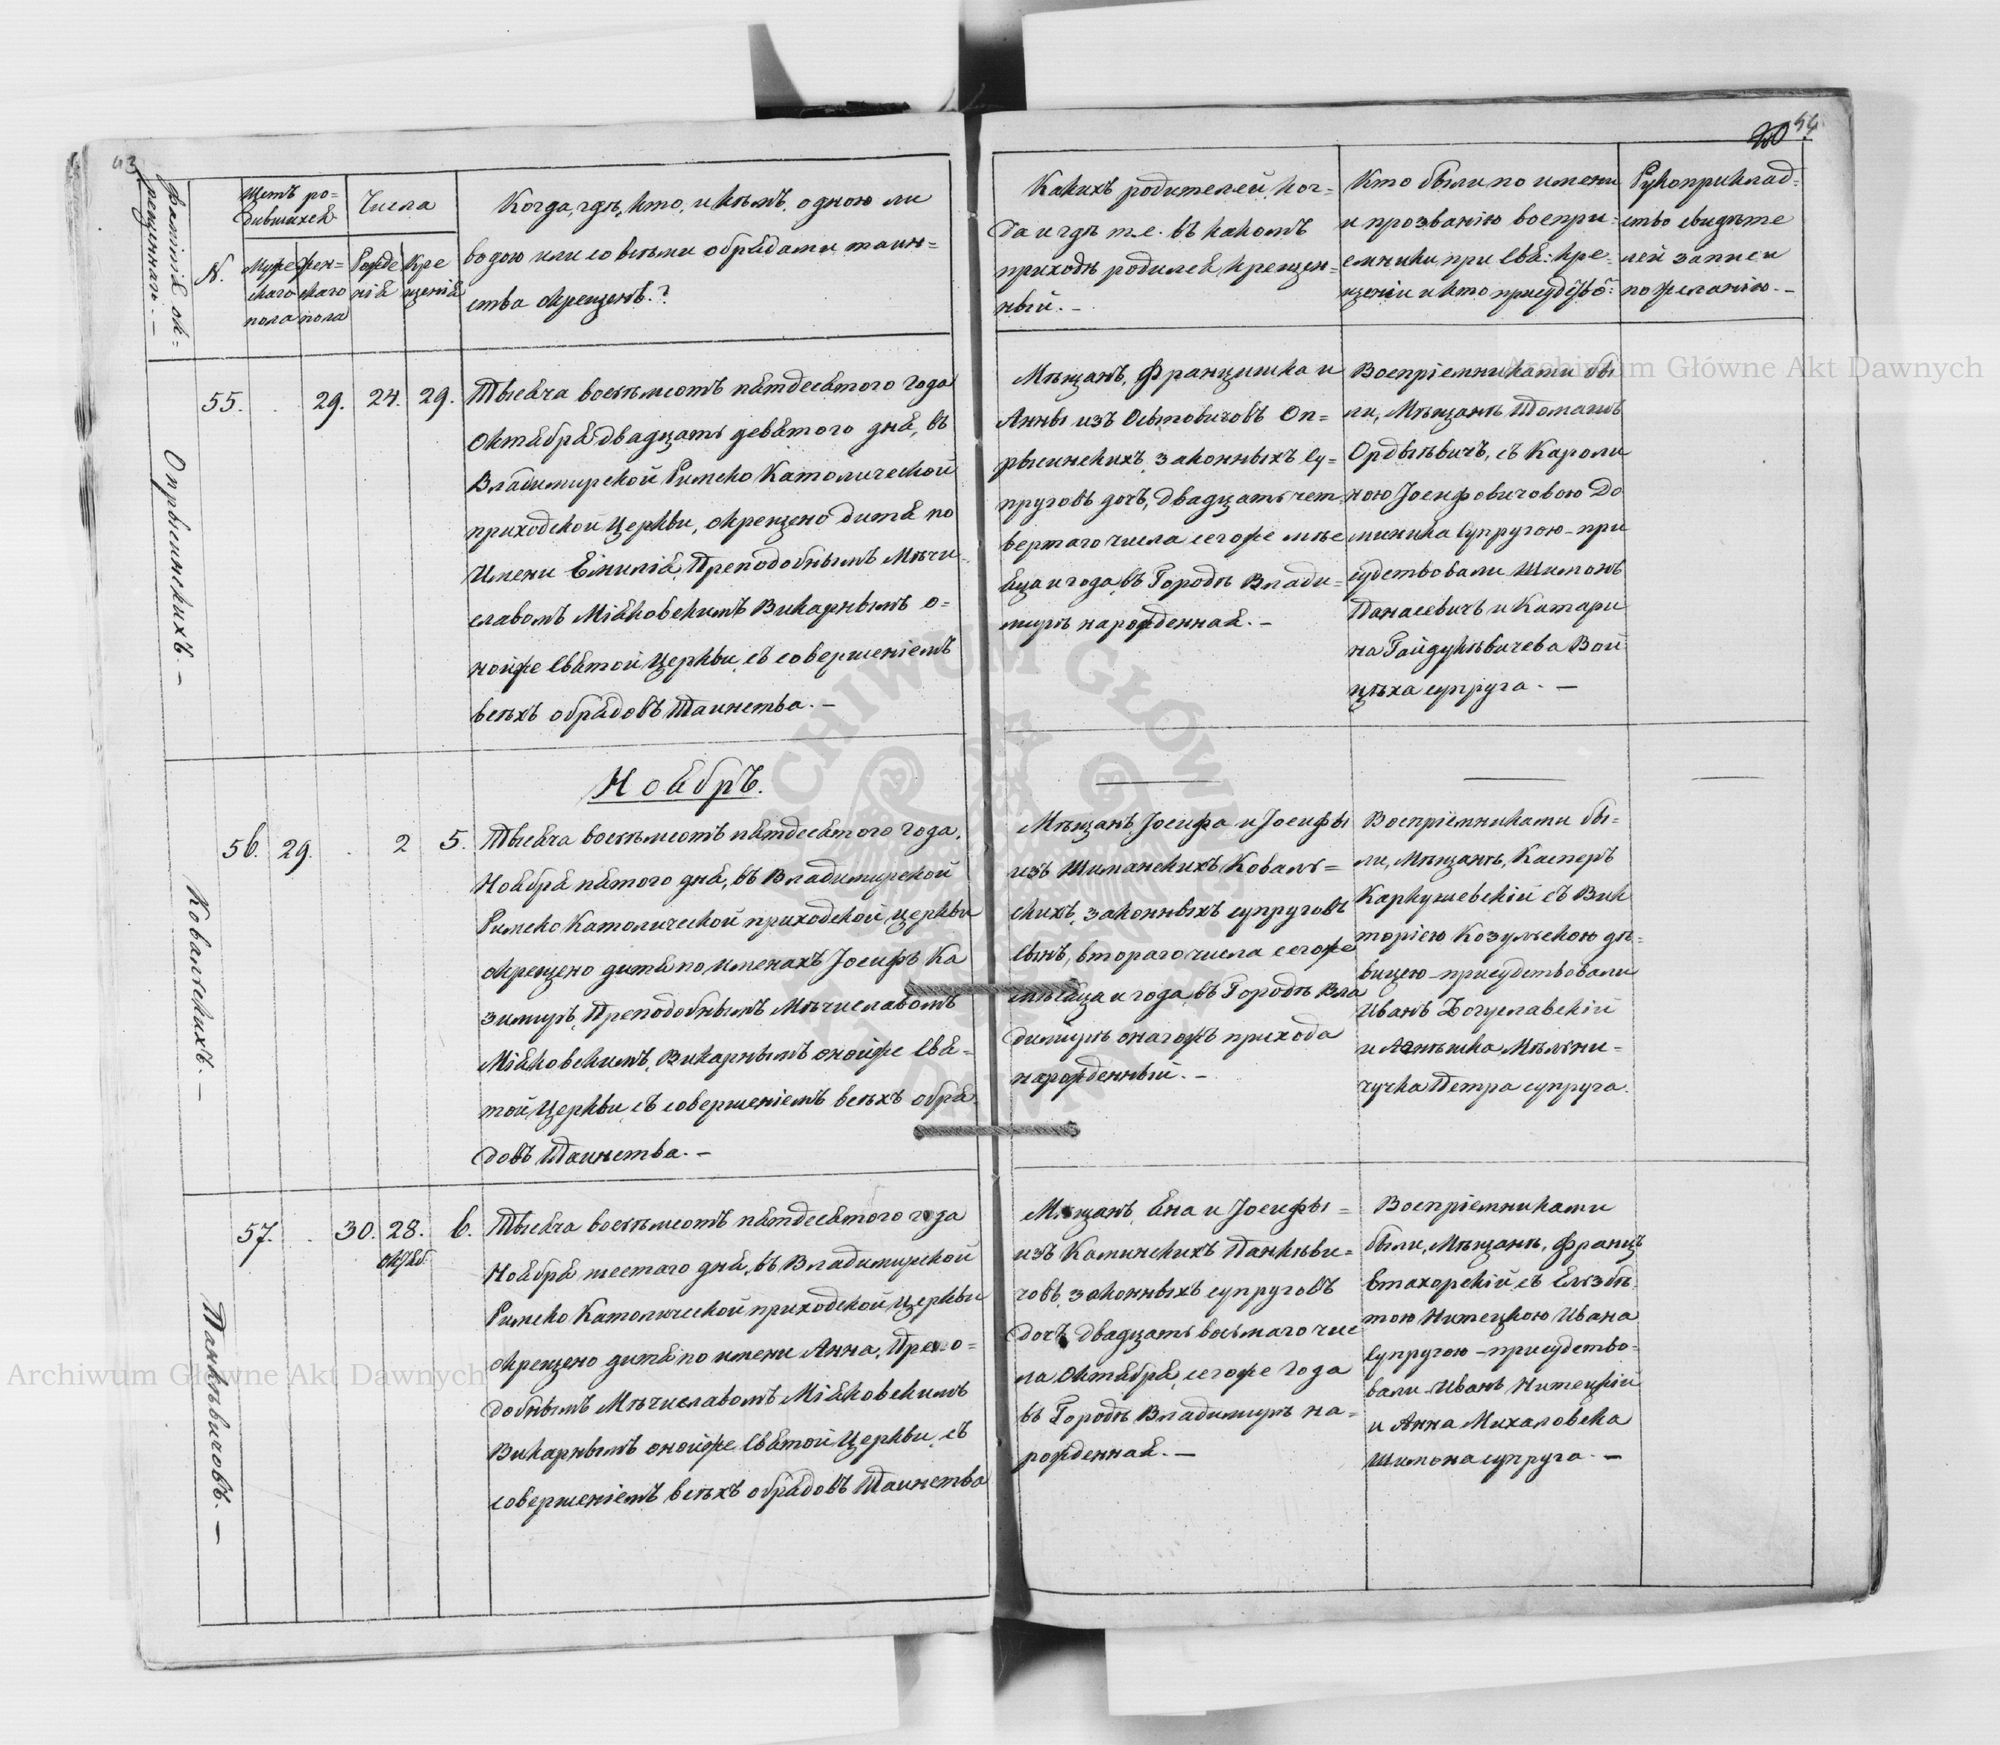 43
фамилія ок-
рещеннаго. –
N.
Щетъ ро=
дившихся
Муже
скаго
пола
Жен=
скаго
пола
Числа
Рожде
нія
Кре
щенія
Когда, гдѣ, кто, и кѣмъ, одною ли
водою или со всѣми обрядами таин=
ства окрещенъ.?
Опрысинскихъ. –
55. . . 29. 24. 29.
Тысяча восемьсотъ пятдесятого года
Октября двадцать девятого дня, въ
Владимирской Римско Католической
приходской Церкви, окрещено дитя по
Имени Емилія, Преподобнымъ Мѣчи-
славомъ Міяковскимъ Викарнымъ о=
нойже Святой Церкви, съ совершеніемъ
всѣхъ обрядовъ Таинства. –
Ноябрь.
Ковальскихъ. –
56. 29. . 2 5.
Тысяча восемьсотъ пятдесятого года,
Ноября пятого дня, въ Владимирской
Римско Католической приходской церкви
окрещено дитя по именахъ Іосифъ Ка
зимиръ, Преподобнымъ Мѣчиславомъ
Міяковскимъ, Викарнымъ онойже Свя=
той Церкви, съ совершеніемъ всѣхъ обря
довъ Таинства. –
Панкѣвичовъ. –
57. . . 30. 28. 6.
Октяб.
Тысяча восемьсотъ пятдесятого года
Ноября шестаго дня, въ Владимирской
Римско Католической приходской Церкви
окрещено дитя по имени Анна, Препо=
добнымъ Мѣчиславомъ Міяковскимъ
Викарнымъ онойже Святой Церкви, съ
совершеніемъ всѣхъ обрядовъ Таинства
44
Какихъ родителей, ког=
да и гдѣ т.е. въ какомъ
приходѣ родился, крещен=
ный. –
Кто были по имени
и прозванію воспри=
емники при Свя: Кре=
щеніи и кто присудство:
Рукоприклад-
ство свидѣте
лей записи
по желанію. –
Мѣщанъ, Францишка и
Анны изъ Осътовичовъ Оп=
рысинскихъ, законныхъ Су=
пруговъ дочь, двадцать чет
вертаго числа сегоже мѣс
яца и года, въ Городѣ Влади=
мирѣ народженная. –
Воспріемниками бы
ли, Мѣщанъ Томашъ
Ордысѣвичъ, съ Кароли
ною Іосифовичовою До
миника Супругою – при
судствовали Шимонъ
Панасевичъ и Катари
на Гайдукѣвичева Вой
цѣха супруга. –
Мѣщанъ, Іосифа и Іосифы
изъ Шиманскихъ Коваль=
скихъ, законныхъ супруговъ
сынъ, втораго числа сегоже
мѣсяца и года, въ Городѣ Вла
димирѣ онагожъ прихода
нарожденный. –
Воспріемниками бы=
ли, Мѣщанъ, Касперъ
Каркушевскій съ Вик
торіею Козульскою дѣ=
вицею – присудствовали
Иванъ Богуславскій
и Агнѣшка Мѣльни=
чучка Петра супруга.
Мѣщанъ, Яна и Іосифы =
изъ Каминскихъ Панкѣви=
човъ, законныхъ супруговъ
дочь двадцать восьмаго чис
ла Октября, сегоже Года
въ Городѣ Владимирѣ на=
рожденная. –
Воспріемниками
были, Мѣщанъ, Францъ
Стахорскій, съ Елзбѣ
тою Нитецкою Ивана
Супругою – присудство=
вали Иванъ Нитецкій
и Анна Михаловска
Шимона супруга. –
Archiwum Główne Akt Dawnych
Archiwum Główne Akt Dawnych